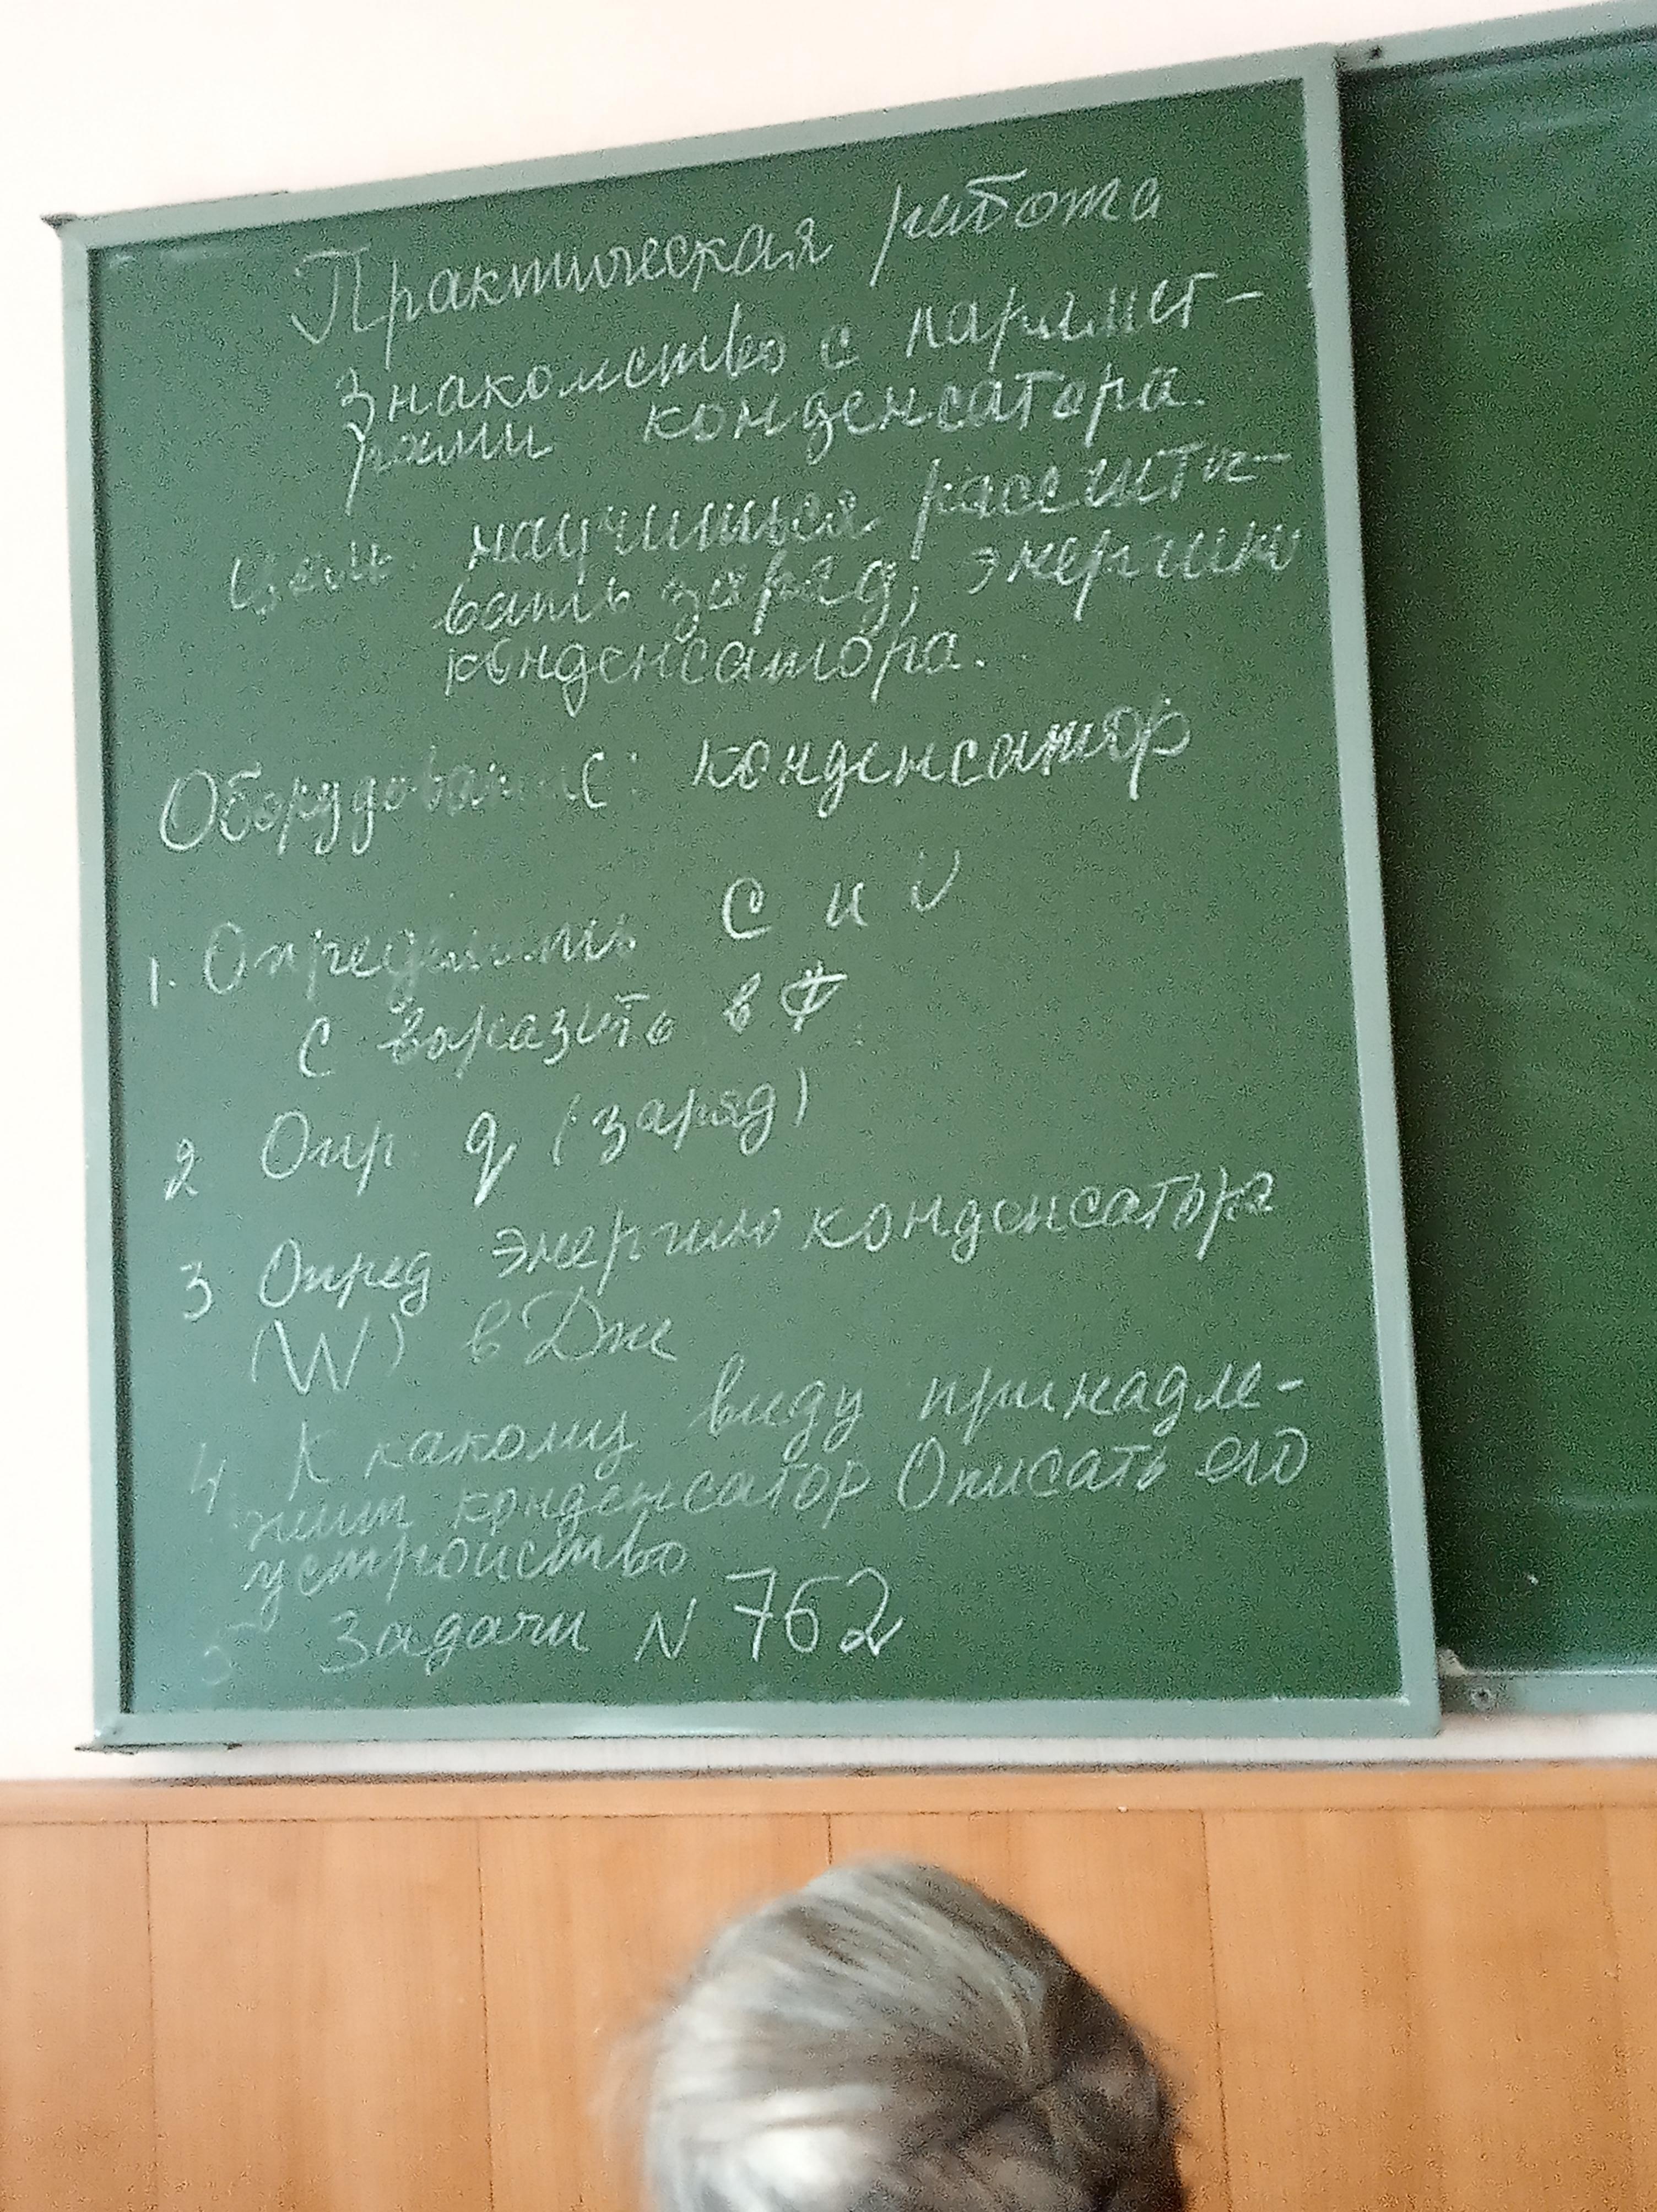 Практическая работа
Знакомство с парамет-
рами конденсатора.
Цель: научиться рассчиты-
вать заряд, энергию
конденсатора.
Оборудование: конденсатор
1. Определить C и U
C выразить в Ф.
2 Опр. q (заряд)
3 Опред энергию конденсатора
(W) в Дж
4 К какому виду принадле-
жит конденсатор Описать его
устройство
5 Задачи N 762